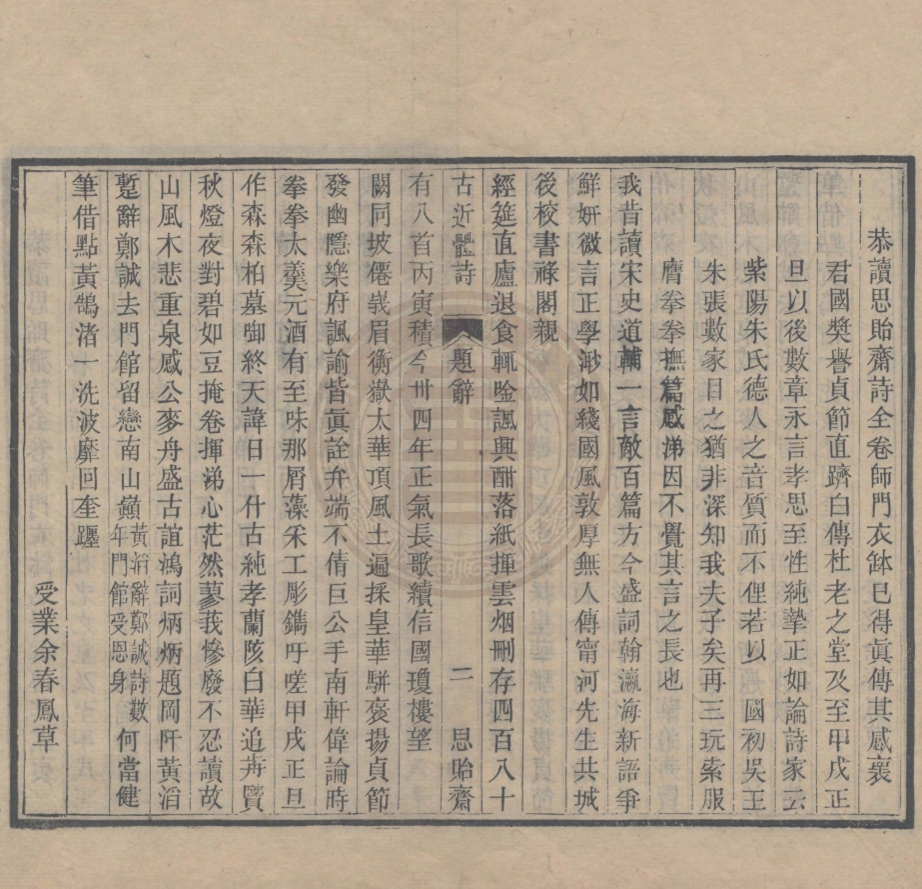 恭讀思貽齋詩全卷師門衣鉢已得眞傳其感襄
君國獎譽貞節直躋白傳杜老之堂及至甲戌正
旦以後數章永言孝思至性純摯正如論詩家云
紫陽朱氏德人之音質而不俚若以　國初吳王
朱張數家目之猶非深知我夫子矣再三玩索服
膺拳拳撫篇感涕因不覺其言之長也
我昔讀宋史道輔一言敵百篇方今盛詞翰瀛海新語爭
鮮妍微言正學渺如綫國風敦厚無人傳甯河先生共城
後校書祿閣親
經筵直廬退食輒唫諷興酣落紙揮雲烟刪存四百八十
古近體詩　題辭　二　思貽齋
有八首丙寅積今丗四年正氣長歌續信國瓊樓望
闕同坡僊峩眉衡嶽太華頂風土遍採皇華駢褒揚貞節
發幽隱樂府諷諭皆眞詮弁端不倩巨公手南軒偉論時
拳拳太羹元酒有至味那屑藻采工彫鐫吁嗟甲戌正旦
作森森柏墓啣終天諱日一什古純孝蘭陔白華追苒賢
秋燈夜對碧如豆掩卷揮涕心茫然蓼我慘廢不忍讀故
山風木悲重泉感公麥舟盛古誼鴻詞炳炳題岡阡黃滔
蹔辭鄭誠去門館留戀南山巓黃滔辭鄭誠詩數年門館受恩身何當健
筆借點黃鵠渚一洗波靡回奎躔
受業余春鳳草